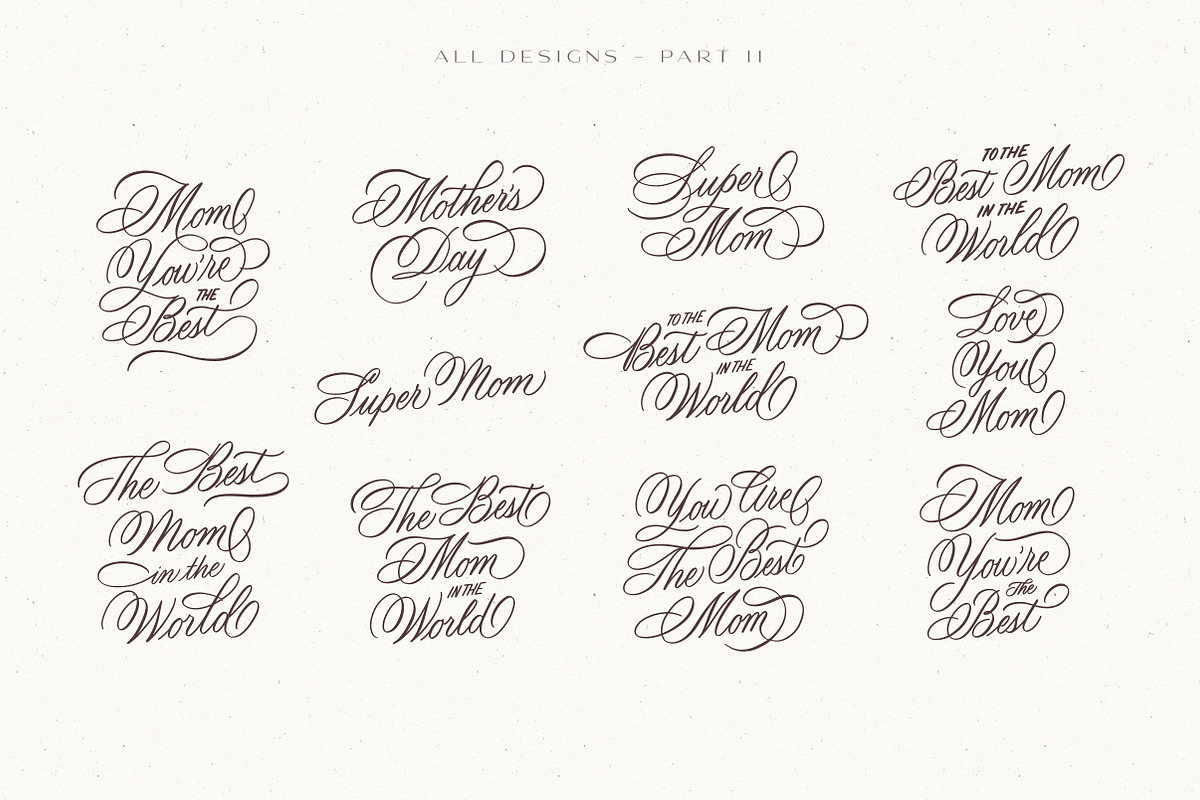 ALL DESIGNS – PART II
Mom
You're
THE
Best
Mother's
Day
Super
Mom
TO THE
Best Mom
IN THE
World
Super Mom
TO THE
Best Mom
IN THE
World
Love
You
Mom
The Best
Mom
in the
World
The Best
Mom
IN THE
World
You Are
The Best
Mom
Mom
You're
The
Best